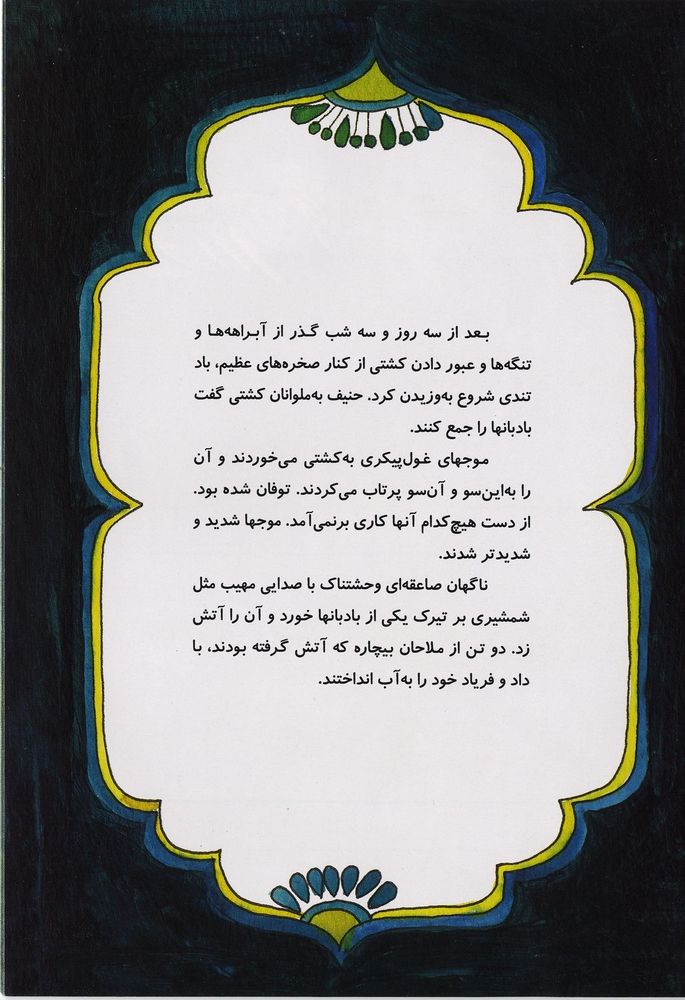 بعد از سه روز و سه شب گذر از آبراهه‌ها و
تنگه‌ها و عبور دادن کشتی از کنار صخره‌های عظیم، باد
تندی شروع به‌وزیدن کرد. حنیف به‌ملوانان کشتی گفت
بادبانها را جمع کنند.
موجهای غول‌پیکری به‌کشتی می‌خوردند و آن
را به‌این‌سو و آن‌سو پرتاب می‌کردند. توفان شده بود.
از دست هیچ‌کدام آنها کاری برنمی‌آمد. موجها شدید و
شدیدتر شدند.
ناگهان صاعقه‌ای وحشتناک با صدایی مهیب مثل
شمشیری بر تیرک یکی از بادبانها خورد و آن را آتش
زد. دو تن از ملاحان بیچاره که آتش گرفته بودند، با
داد و فریاد خود را به‌آب انداختند.